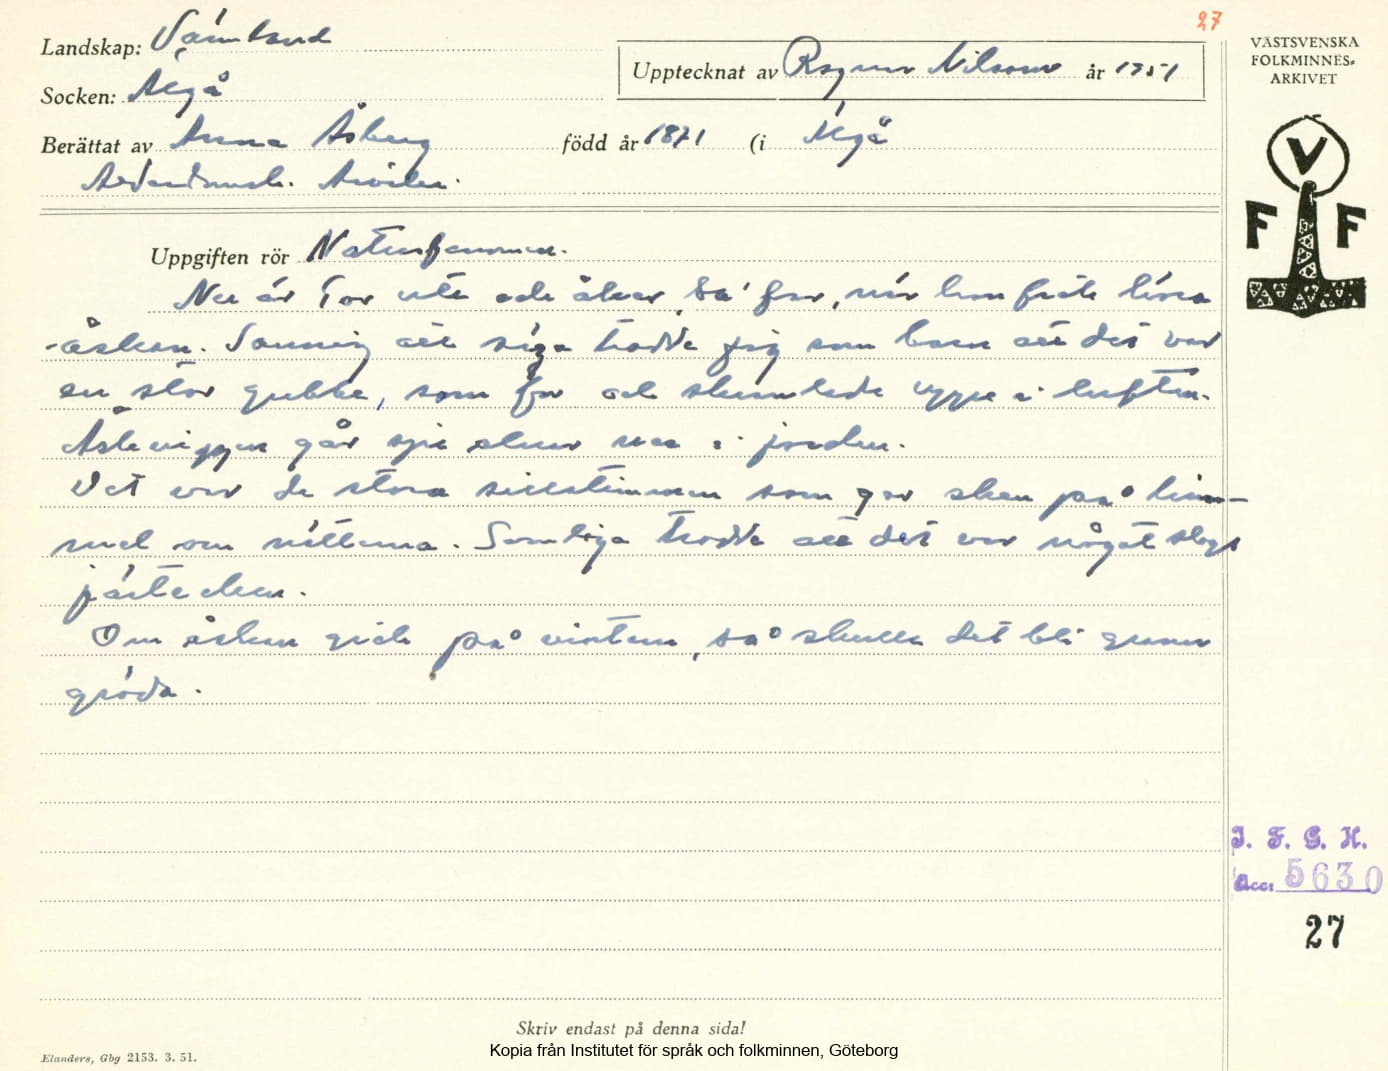 27
Landskap: Värmland
Upptecknat av Ragnar Nilsson år 1951
VÄSTSVENSKA
FOLKMINNES-
ARKIVET
Socken: Älgå
Berättat av Anna Åsberg född år 1871 (i Älgå
Arvika.
V
F F
Uppgiften rör Naturfenomen.
Nu är Tor ute och åker, sa' far, när han fick höra
åskan. Sanning att säga trodde jag som barn att det var
en stor gubbe, som for och skramlade uppe i luften.
Åskviggen går sju alnar ner i jorden.
Det var de stora sillstimmen som gav sken på him-
mel om nätterna. Somliga trodde att det var något slags
järtecken.
Om åskan gick på vintern, så skulle det bli grann
gröda.
I. F. G. H.
Acc: 5630
27
Skriv endast på denna sida!
Kopia från Institutet för språk och folkminnen, Göteborg
Elanders, Gbg 2153. 3. 51.